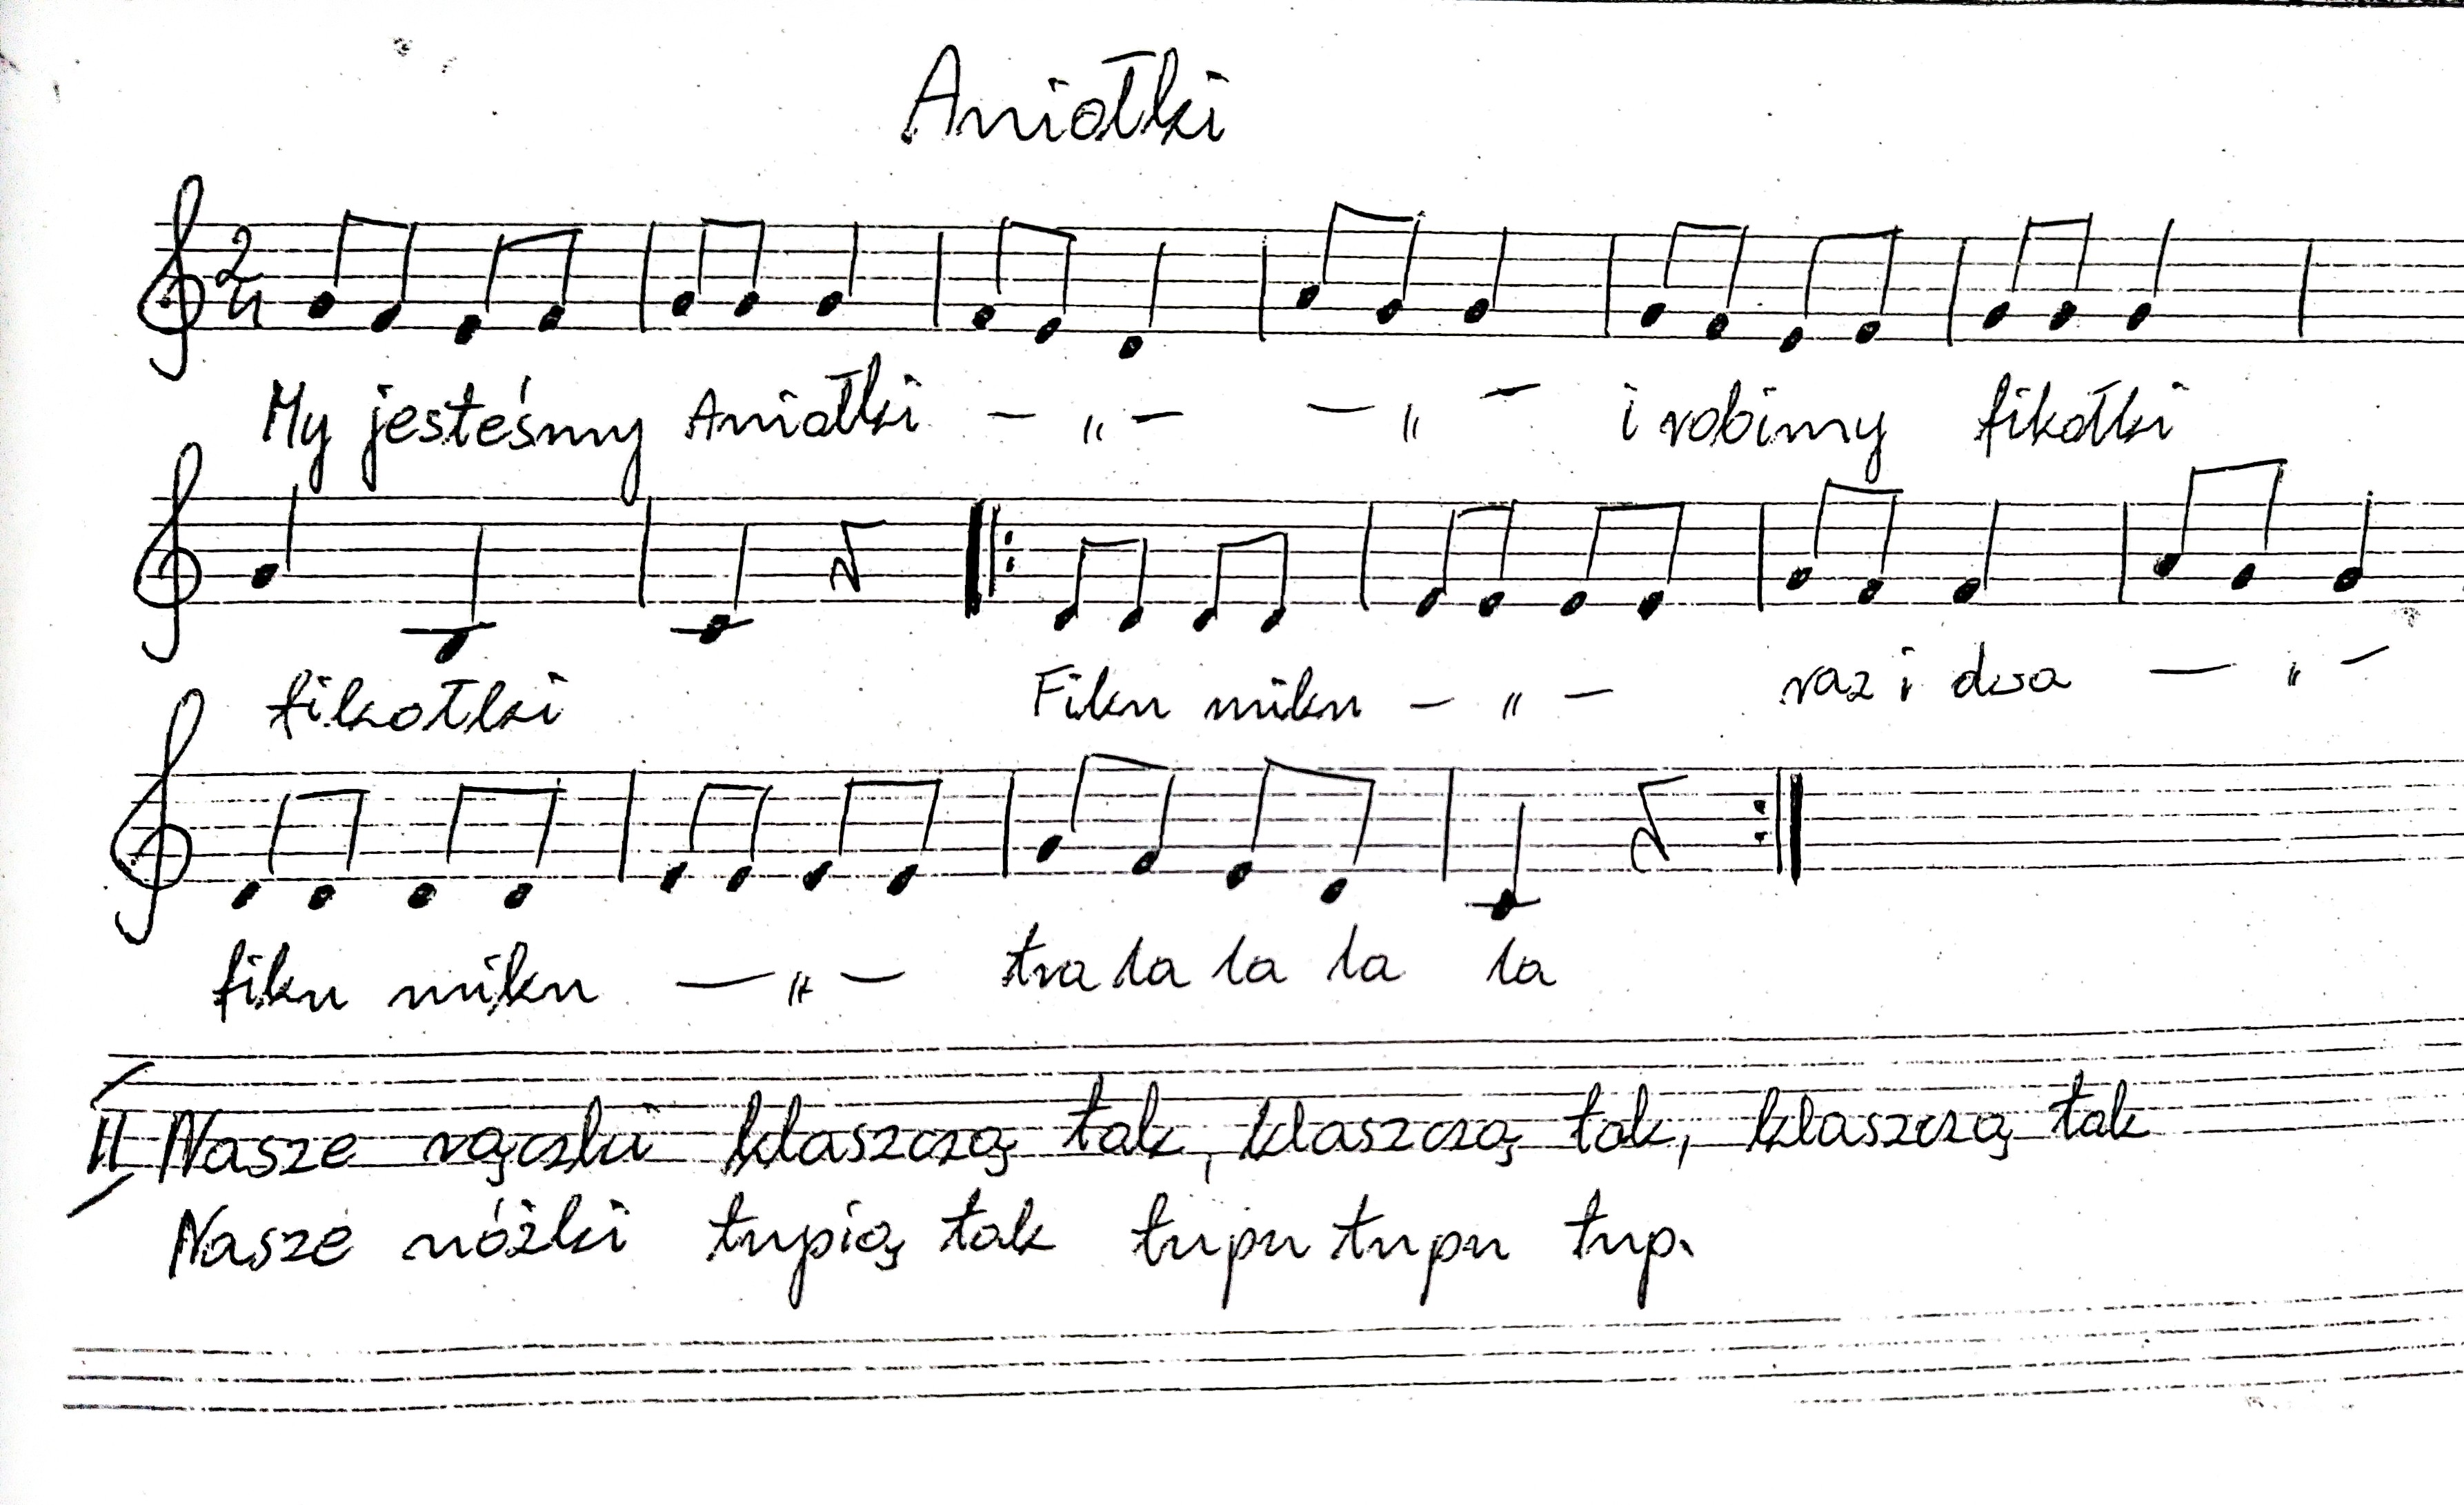 Aniołki
2
4
My jesteśmy Aniołki — „ — — „ — i robimy fikołki
fikołki Fiku miku — „ — raz i dwa — „ —
fiku miku — „ — tra la la la la
II Nasze rączki klaszczą tak, klaszczą tak, klaszczą tak
Nasze nóżki tupią tak tupu tupu tup.